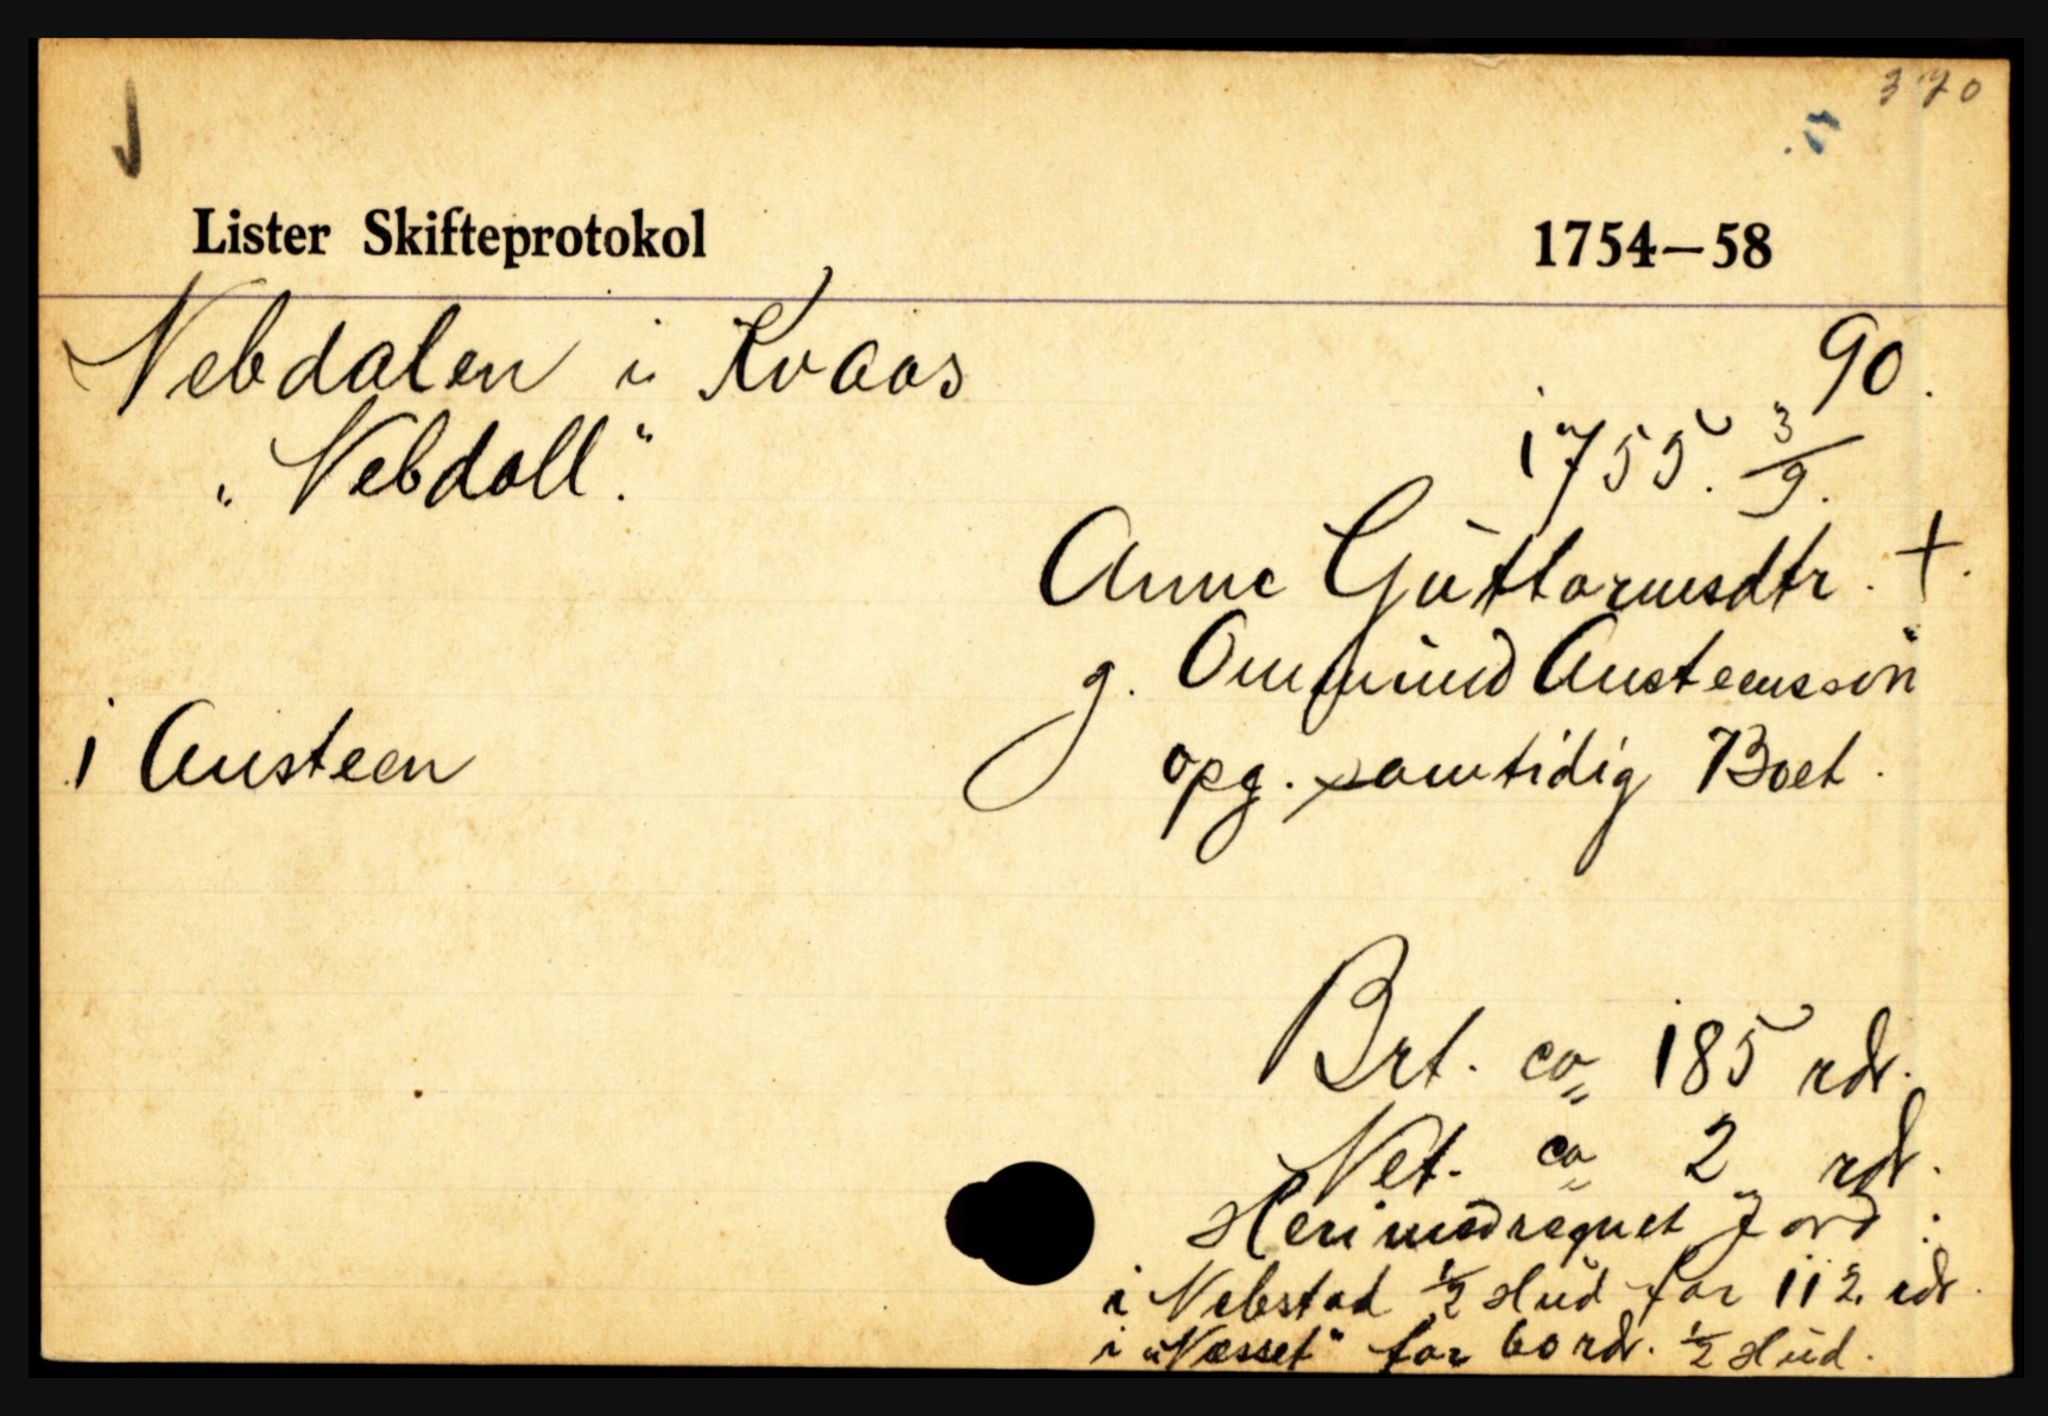 370
Lister Skifteprotokol 1754—58
Nebdalen i Kvaas 90.
"Nebdall". 1755. 3/9.
Anne Guttormsdtr. †.
g. Ommund Austeensson
1 Austeen
opg. samtidig Boet.
Brt. ca 185 rdr.
Net. ca 2 rdr.
Heri medregnet Jord:
i Nebstad 1/2 Hud for 112 rdr.
i "Næsset" for 60 rdr. 1/2 Hud.